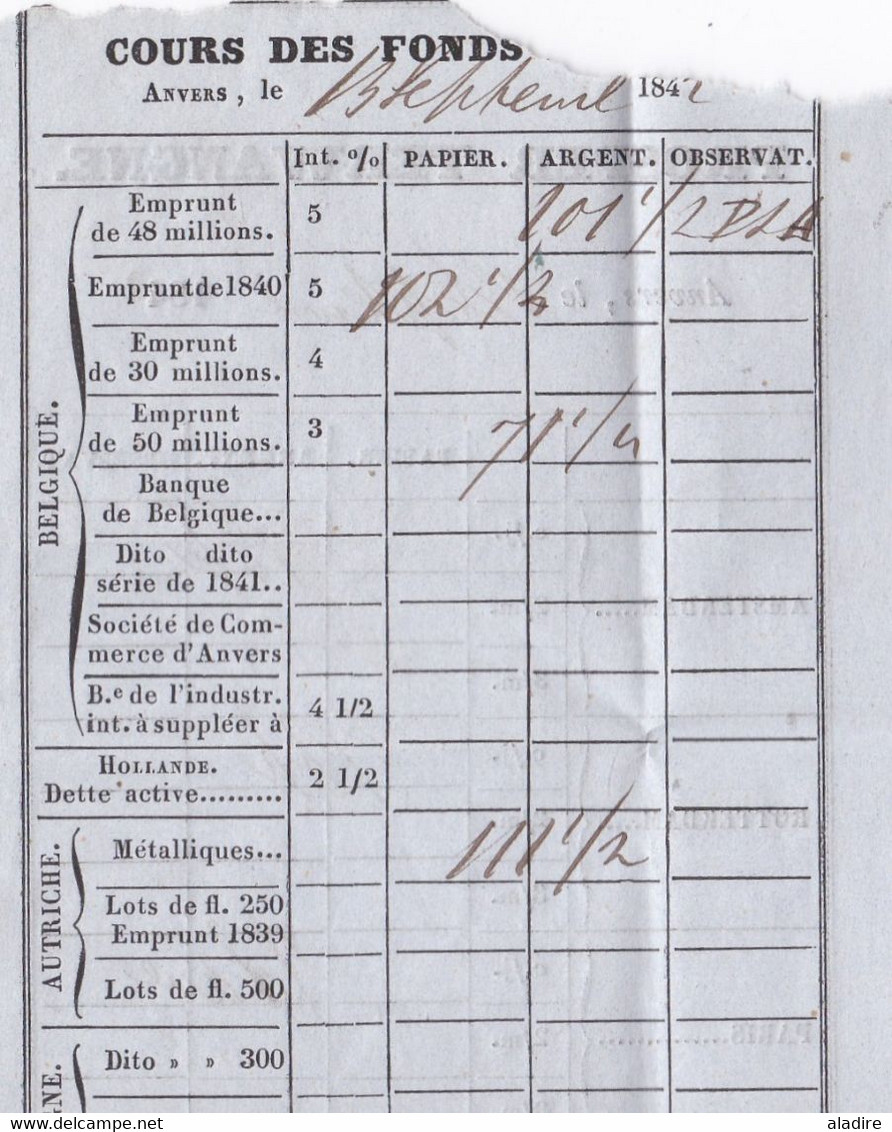 COURS DES FONDS
ANVERS, le 13 Septembre 1842
Int. % PAPIER. ARGENT. OBSERVAT.
BELGIQUE.
Emprunt
de 48 millions. 5 101 1/2
Emprunt de 1840 5 102 1/2
Emprunt
de 30 millions. 4
Emprunt
de 50 millions. 3 71 1/4
Banque
de Belgique...
Dito dito
série de 1841..
Société de Com-
merce d'Anvers
B.e de l'industr.
int. à suppléer à 4 1/2
HOLLANDE.
Dette active......... 2 1/2
AUTRICHE.
Métalliques... 111 1/2
Lots de fl. 250
Emprunt 1839
Lots de fl. 500
GNE.
Dito » » 300
aladire